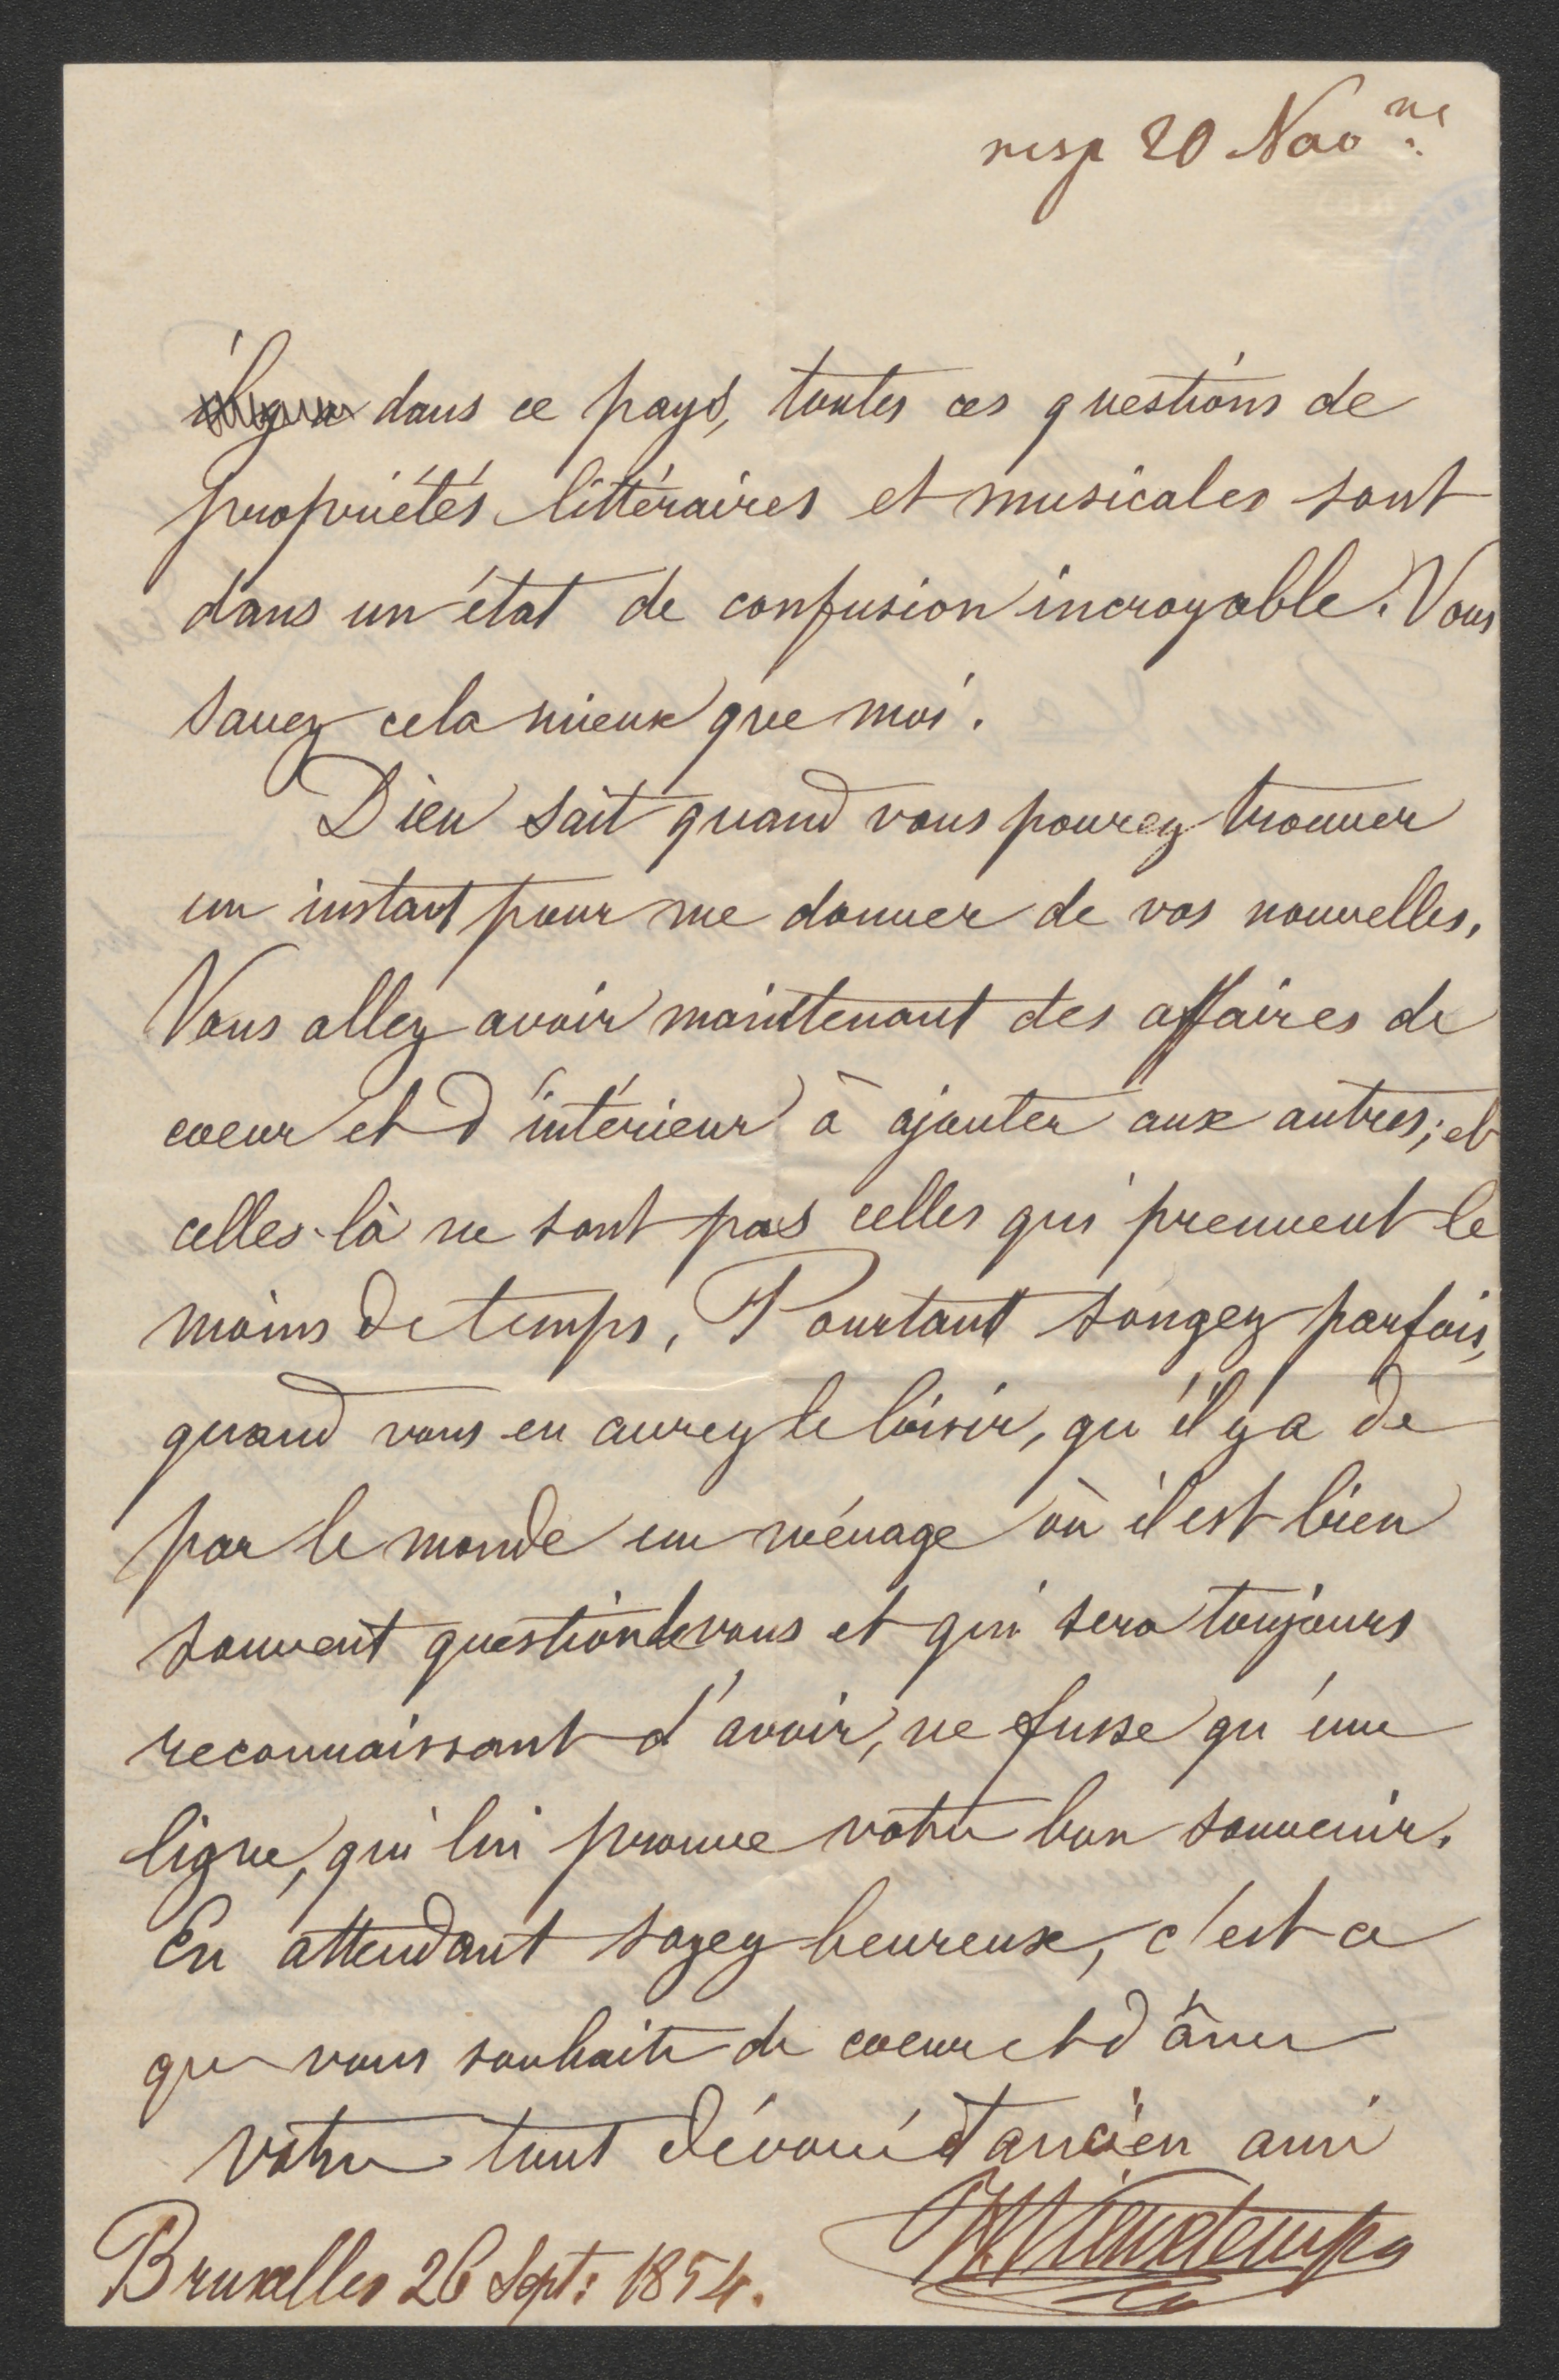 resp 20 Nov
dans ce pays, toutes ces questions de
propriétés littéraires et musicales sont
dans un état de confusion incroyable. Vous
savez cela mieux que moi.
Dieu sait quand vous pourez trouver
un instant pour me donner de vos nouvelles.
Vous allez avoir maintenant des affaires de
coeur et d'intérieur à ajouter aux autres; et
celles-là ne sont pas celles qui prennent le
moins de temps. Pourtant songez parfois,
quand vous en aurez le loisir, qu'il y a de
par le monde un ménage où il est bien
souvent question de vous et qui sera toujours
reconnaissant d'avoir, ne fusse qu'une
ligne, qui lui prouve votre bon souvenir.
En attendant soyez heureux, c'est ce
que vous souhaite de coeur et d'âme
votre tout dévoué et ancien ami
HVieuxtemps
Bruxelles 26 Sept: 1854.